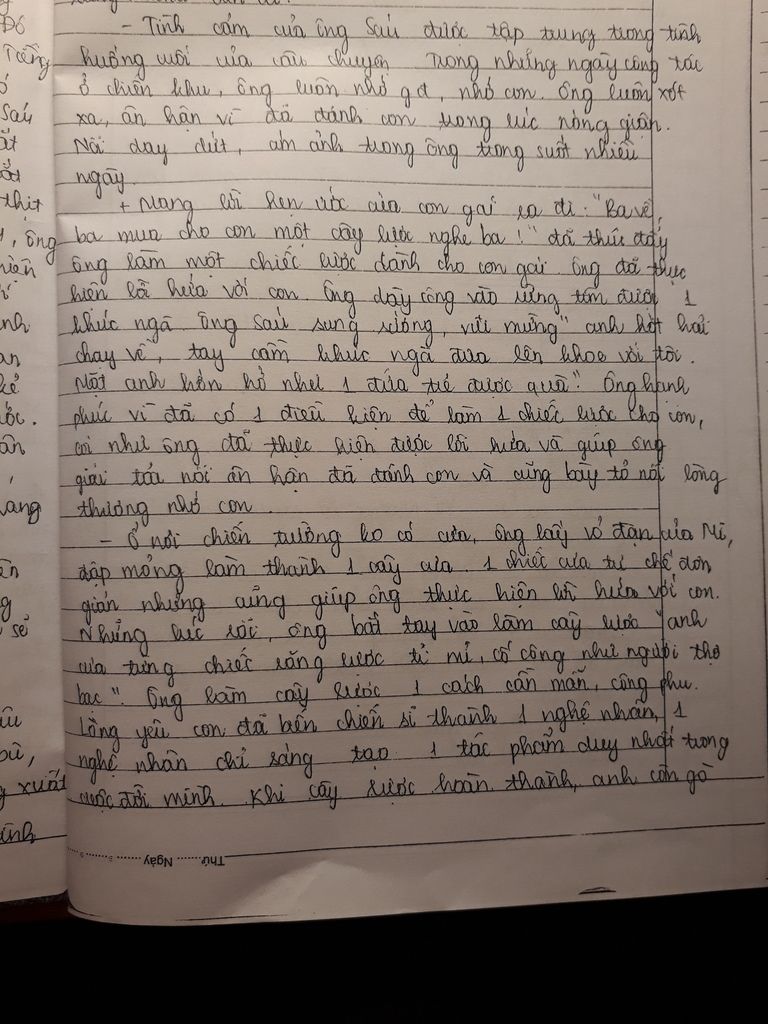 - Tình cảm của ông Sáu được tập trung trong tình
huống cuối của câu chuyện Trong những ngày công tác
ở chiến khu, ông luôn nhớ gđ, nhớ con. Ông luôn xót
xa, ân hận vì đã đánh con trong lúc nóng giận.
Nỗi day dứt, ám ảnh trong ông trong suốt nhiều
ngày.
+ Mang lời hẹn ước của con gái ra đi: "Ba về,
ba mua cho con một cây lược nghe ba!" đã thúc đẩy
ông làm một chiếc lược dành cho con gái. Ông đã thực
hiện lời hứa với con. Ông dày công vào rừng tìm được 1
khúc ngà ông Sáu sung sướng, vui mừng "anh hớt hải
chạy về, tay cầm khúc ngà đưa lên khoe với tôi.
Mặt anh hớn hở như 1 đứa trẻ được quà". Ông hạnh
phúc vì đã có 1 điều kiện để làm 1 chiếc lược cho con,
coi như ông đã thực hiện được lời hứa và giúp ông
giải tỏa nỗi ân hận đã đánh con và cũng bày tỏ nỗi lòng
thương nhớ con.
- Ở nơi chiến trường ko có cưa, ông lấy vỏ đạn của Mĩ,
đập mỏng làm thành 1 cây cưa. 1 chiếc cưa tự chế đơn
giản nhưng cũng giúp ông thực hiện lời hứa với con.
Những lúc rỗi, ông bắt tay vào làm cây lược "anh
cưa từng chiếc răng lược tỉ mỉ, cố công như người thợ
bạc". Ông làm cây lược 1 cách cần mẫn, công phu.
Lòng yêu con đã biến chiến sĩ thành 1 nghệ nhân, 1
nghệ nhân chỉ sáng tạo 1 tác phẩm duy nhất trong
cuộc đời mình. Khi cây lược hoàn thành, anh còn gò
Thứ ....... Ngày .......